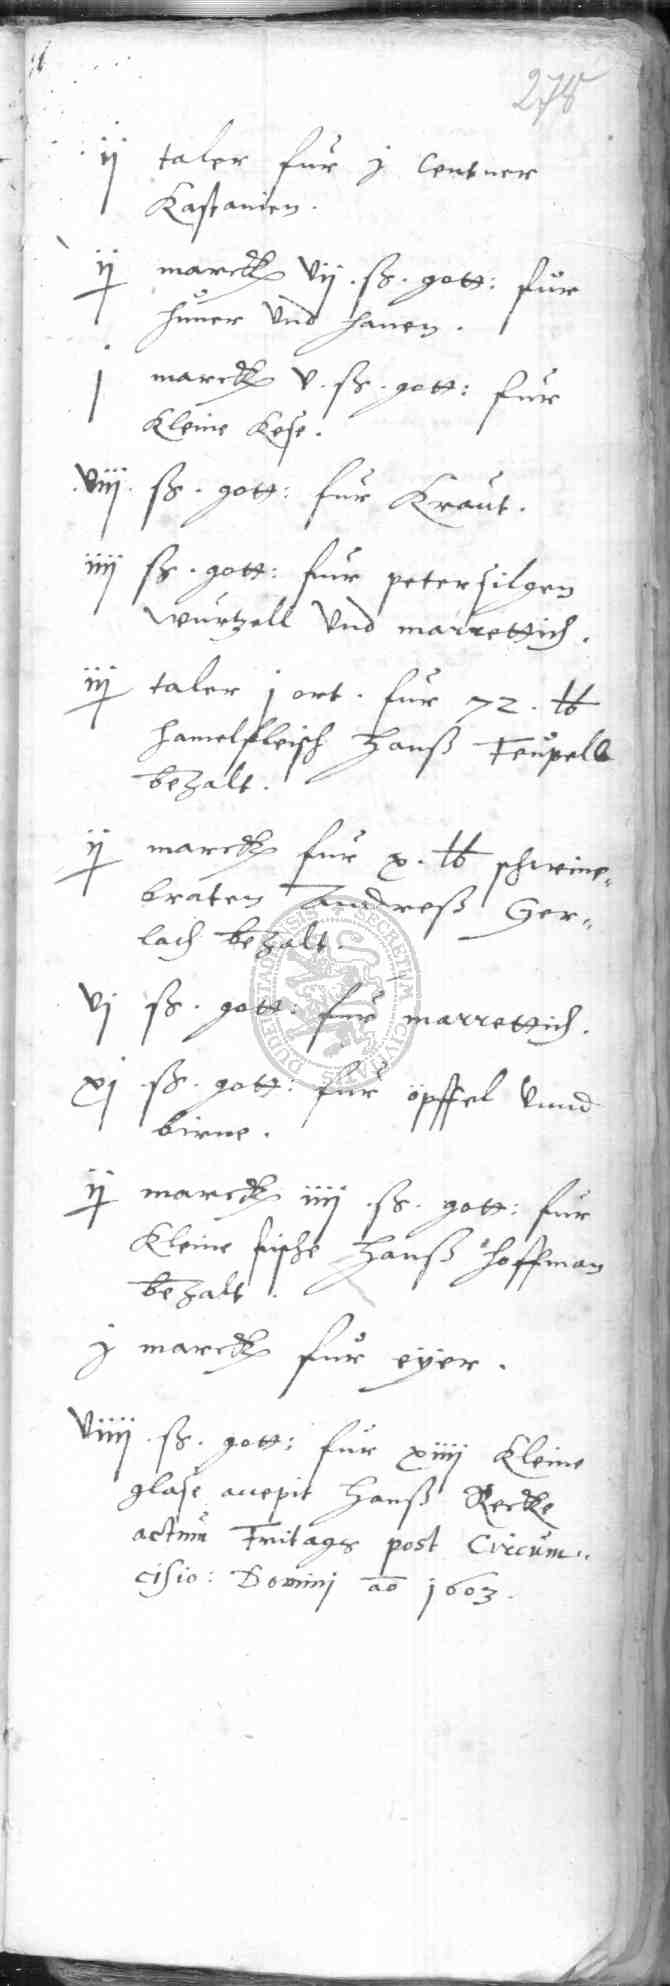 278
ij taler fur j Centner
Kastanien.
ij marck vij. ß. gott: fur
huner vnd hanen.
j marck v. ß. gott: fur
kleine kese.
.viij. ß. gott: fur Kraut.
iiij ß. gott: fur petersilgen
wurtzell vnd marrettich.
iij taler j ort. fur 72. lb
hamelfleisch Hanß Teupell
bezalt.
ij marck fur x. lb schweine„
braten Andreß Ger„
lach bezalt.
vj ß. gott: fur marrettich.
xj ß. gott: fur öpffel vnnd
birne.
ij marck iiij ß. gott: fur
kleine fische Hanß Hoffman
bezalt.
j marck fur eyer.
viiij. ß. gott: fur xiiij kleine
glase accepit Hanß Recke
actum Fritags post Circum„
cisio: Domini ao 1603.
SECRETUM CIVITATIS DUDERSTADENSIS